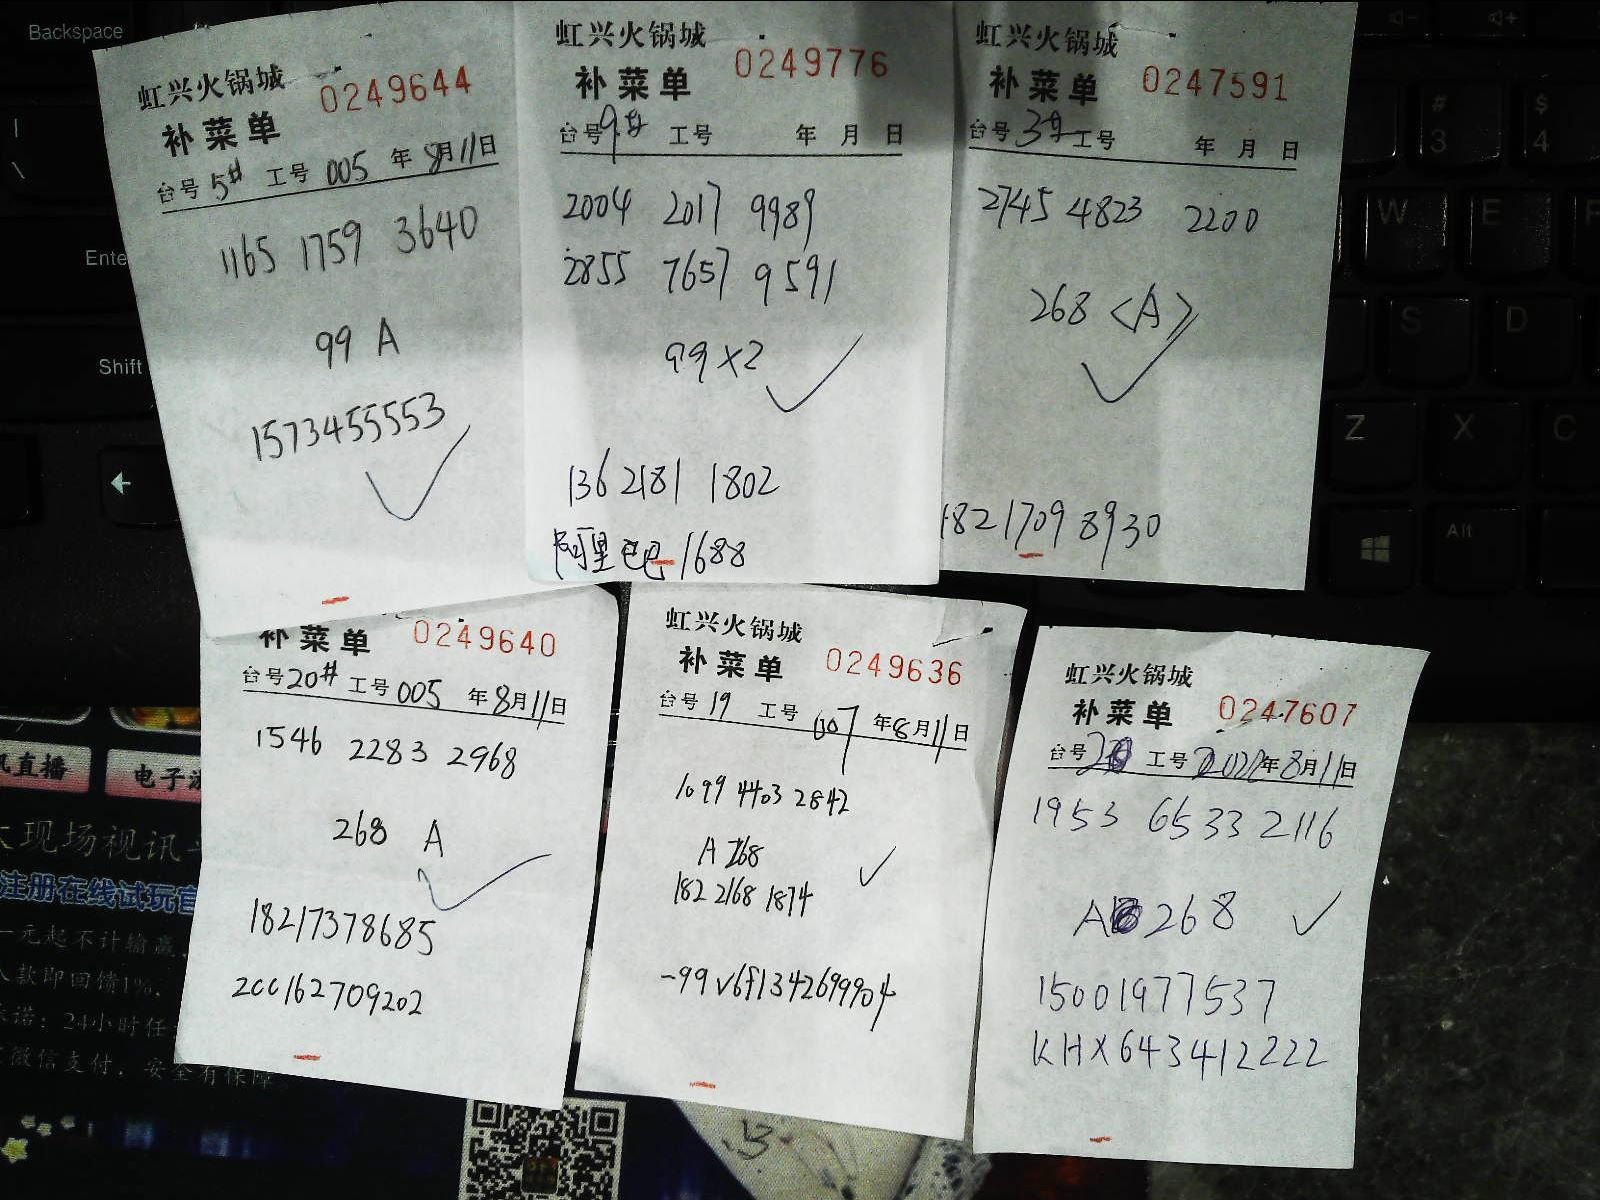 Backspace
Enter
Shift
虹兴火锅城
补菜单 0249644
台号 5# 工号 005 年 8月11日
1165 1759 3640
99 A
1573455553
虹兴火锅城
补菜单 0249776
台号 9# 工号 年 月 日
2004 2017 9989
2855 7657 9591
99 X2
136 2181 1802
阿里巴巴 1688
虹兴火锅城
补菜单 0247591
台号 3# 工号 年 月 日
2745 4823 2200
268 <A>
1821709 8930
# 3
$ 4
W E
S D
Z X C
Alt
补菜单 0249640
台号 20# 工号 005 年 8月11日
1546 2283 2968
268 A
18217378685
2CC162709202
虹兴火锅城
补菜单 0249636
台号 19 工号 007 年 8月11日
1099 4403 2842
A 268
182 2168 1874
-99 v6f1342699904
虹兴火锅城
补菜单 0247607
台号 工号 2021年 8月11日
1953 6533 2116
A 268
15001977537
KHX643412222
直播 电子
现场视讯
注册在线试玩
一元起不计输赢
款即回馈1%.
诺: 24小时任
微信支付. 安全有保障